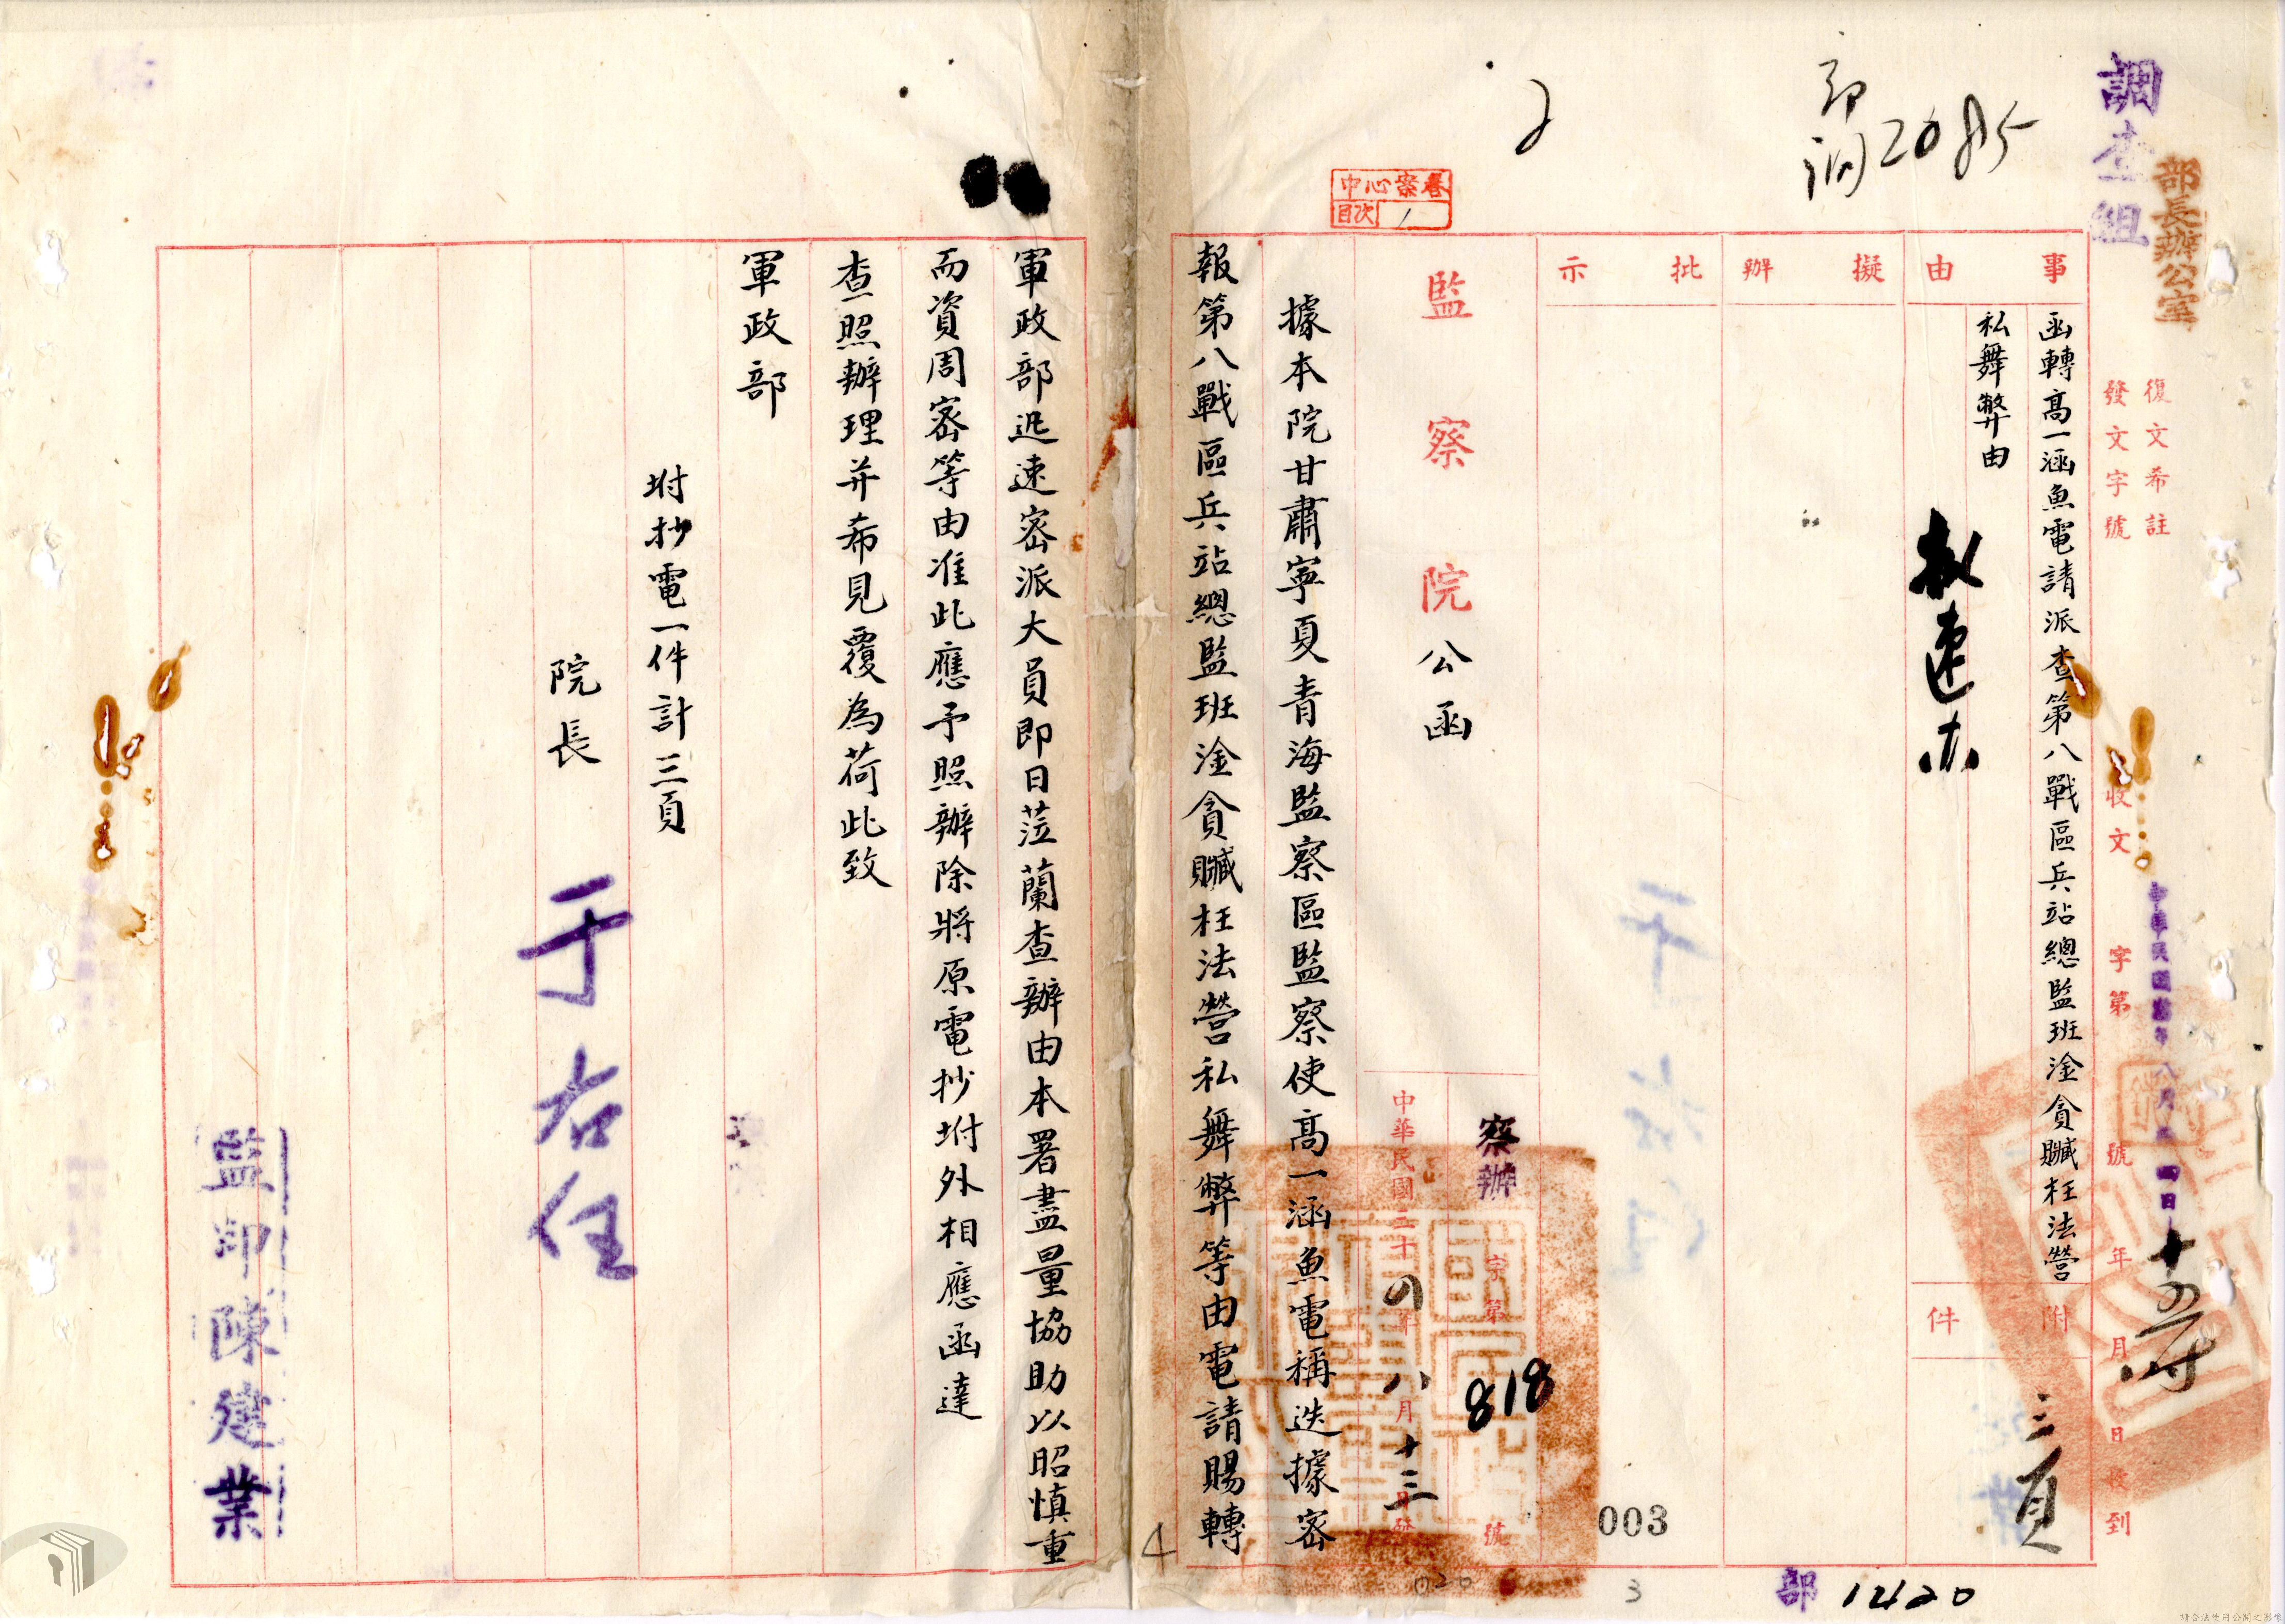 調查組
部長辦公室
部
調2085
2
中心案卷
目次 1
復文希註
發文字號
收文 字第 號 年 月 日收到
中華民國 年八月 四日
十五時
事由
函轉高一涵魚電請派查第八戰區兵站總監班淦貪贓枉法營
私舞弊由
附件
三頁
擬辦
批示
監察院公函
察辦字第818號
中華民國三十四年八月十三日發
據本院甘肅寧夏青海監察區監察使高一涵魚電稱迭據密
報第八戰區兵站總監班淦貪贓枉法營私舞弊等由電請賜轉
軍政部迅速密派大員即日蒞蘭查辦由本署盡量協助以昭慎重
而資周密等由准此應予照辦除將原電抄坿外相應函達
查照辦理并希見覆為荷此致
軍政部
坿抄電一件計三頁
院長 于右任
監印陳建業
003
020
3
4
部 12120
請合法使用公開之影像